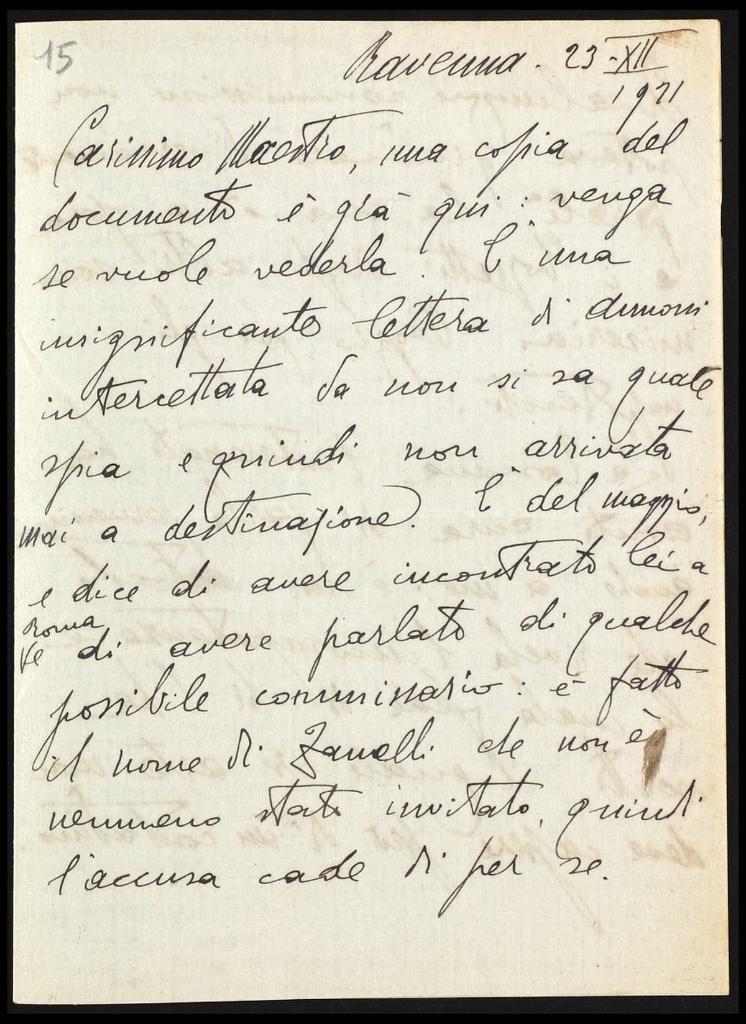 15
Ravenna. 23-XII
1921
Carissimo Maestro, una copia del
documento è già qui: venga
se vuole vederla. È una
insignificante lettera di
intercettata da non si sa quale
spia e quindi non arrivata
mai a destinazione. È del maggio,
e dice di avere incontrato lei a
Roma
e di avere parlato di qualche
possibile commissario: è fatto
il nome di Zanelli che non è
nemmeno stato invitato, quindi
l'accusa cade di per se.